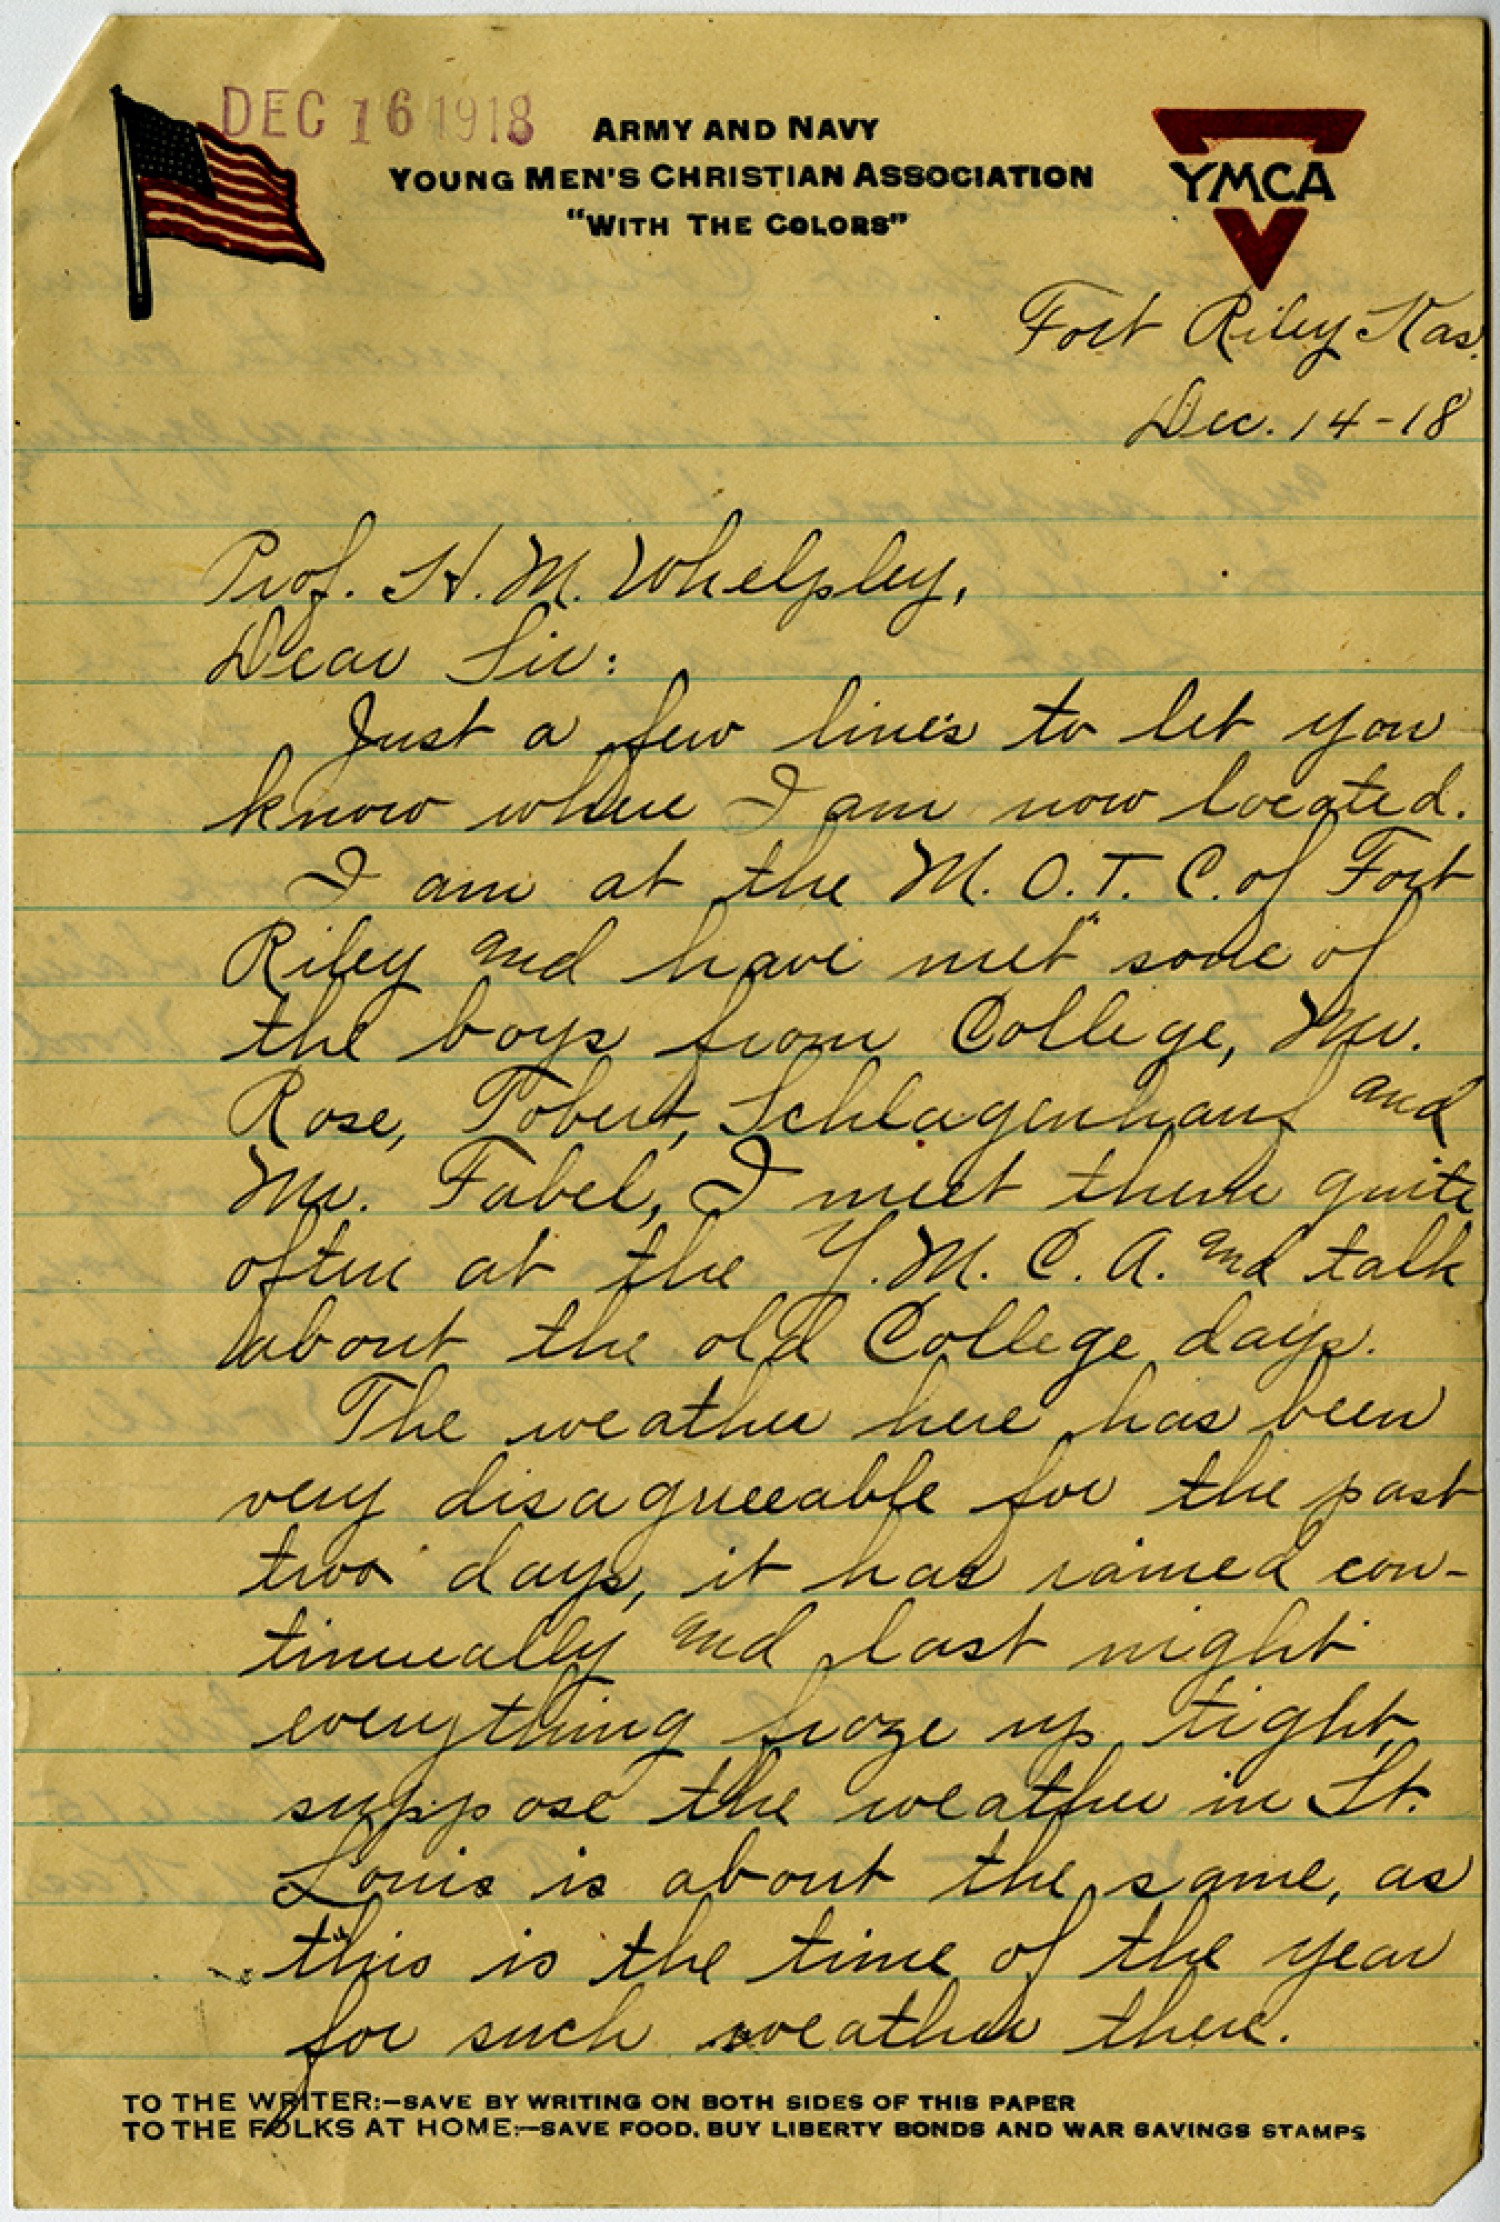 DEC 16 1918
ARMY AND NAVY
YOUNG MEN'S CHRISTIAN ASSOCIATION
"WITH THE COLORS"
YMCA
Fort Riley Kas.
Dec. 14-18
Prof. H. M. Whelpley,
Dear Sir:
Just a few lines to let you
know where I am now located.
I am at the M. O. T. C. of Fort
Riley and have met some of
the boys from College, Mr.
Rose, Tobert, Schlagenhauf and
Mr. Fabel, I meet them quite
often at the Y. M. C. A. and talk
about the old College days.
The weather here has been
very disagreeable for the past
two days, it has rained con-
tinually and last night
everything froze up tight,
suppose the weather in St.
Louis is about the same, as
this is the time of the year
for such weather there.
TO THE WRITER:—SAVE BY WRITING ON BOTH SIDES OF THIS PAPER
TO THE FOLKS AT HOME:—SAVE FOOD, BUY LIBERTY BONDS AND WAR SAVINGS STAMPS